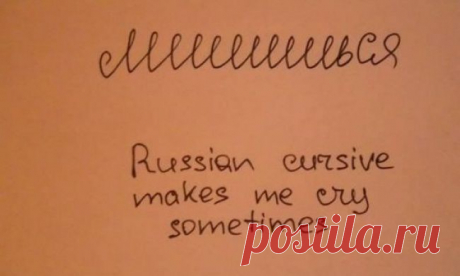 лишишься
Russian cursive
makes me cry
sometimes
postila.ru